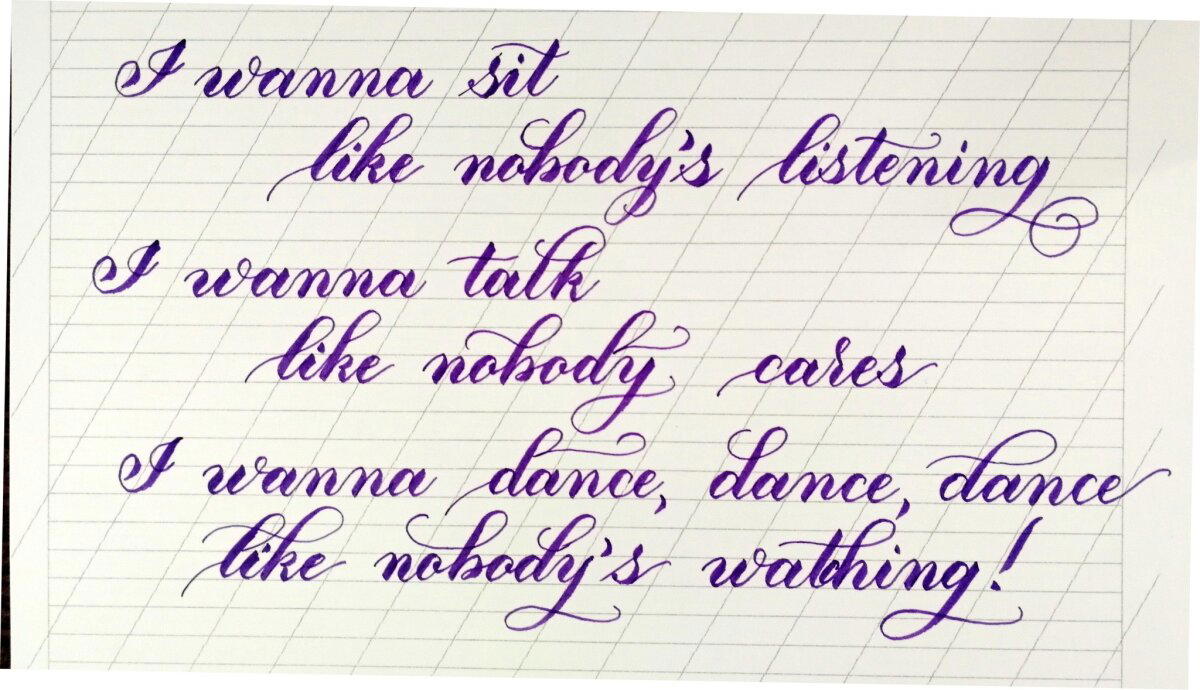 I wanna sit
like nobody's listening
I wanna talk
like nobody cares
I wanna dance, dance, dance
like nobody's watching!